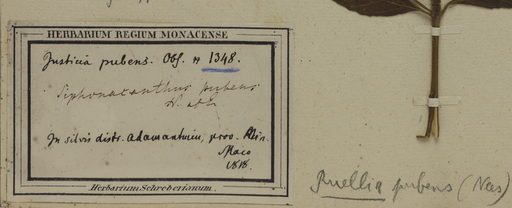 HERBARIUM REGIUM MONACENSE
Justicia pubens. Obs. n 1348.
Siphonacanthus pubens
In silvis distr. adamantum, prov. Min.
Majo
1818.
Herbarium Schreberianum.
Ruellia pubens (Nees)